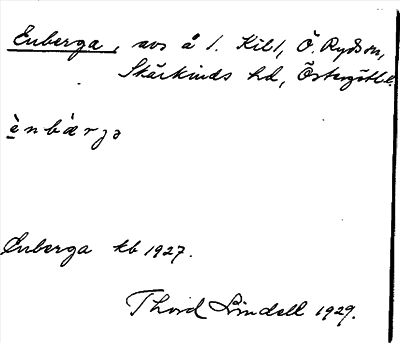 Enberga, avs å 1. Kil 1, Ö. Ryds sn,
Skärkinds hd, Östergötl.
Enberga kb 1927.
Thord Lindell 1929.